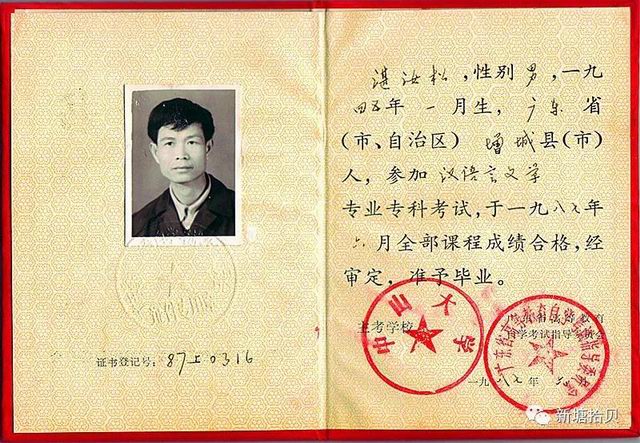 证书登记号：87上0316
湛汝松，性别男，一九
四五年一月生，广东省
（市、自治区）增城县（市）
人，参加汉语言文学
专业专科考试，于一九八七年
六月全部课程成绩合格，经
审定，准予毕业。
主考学校
中山大学
自学考试指导委员会
一九八七年
新塘拾贝